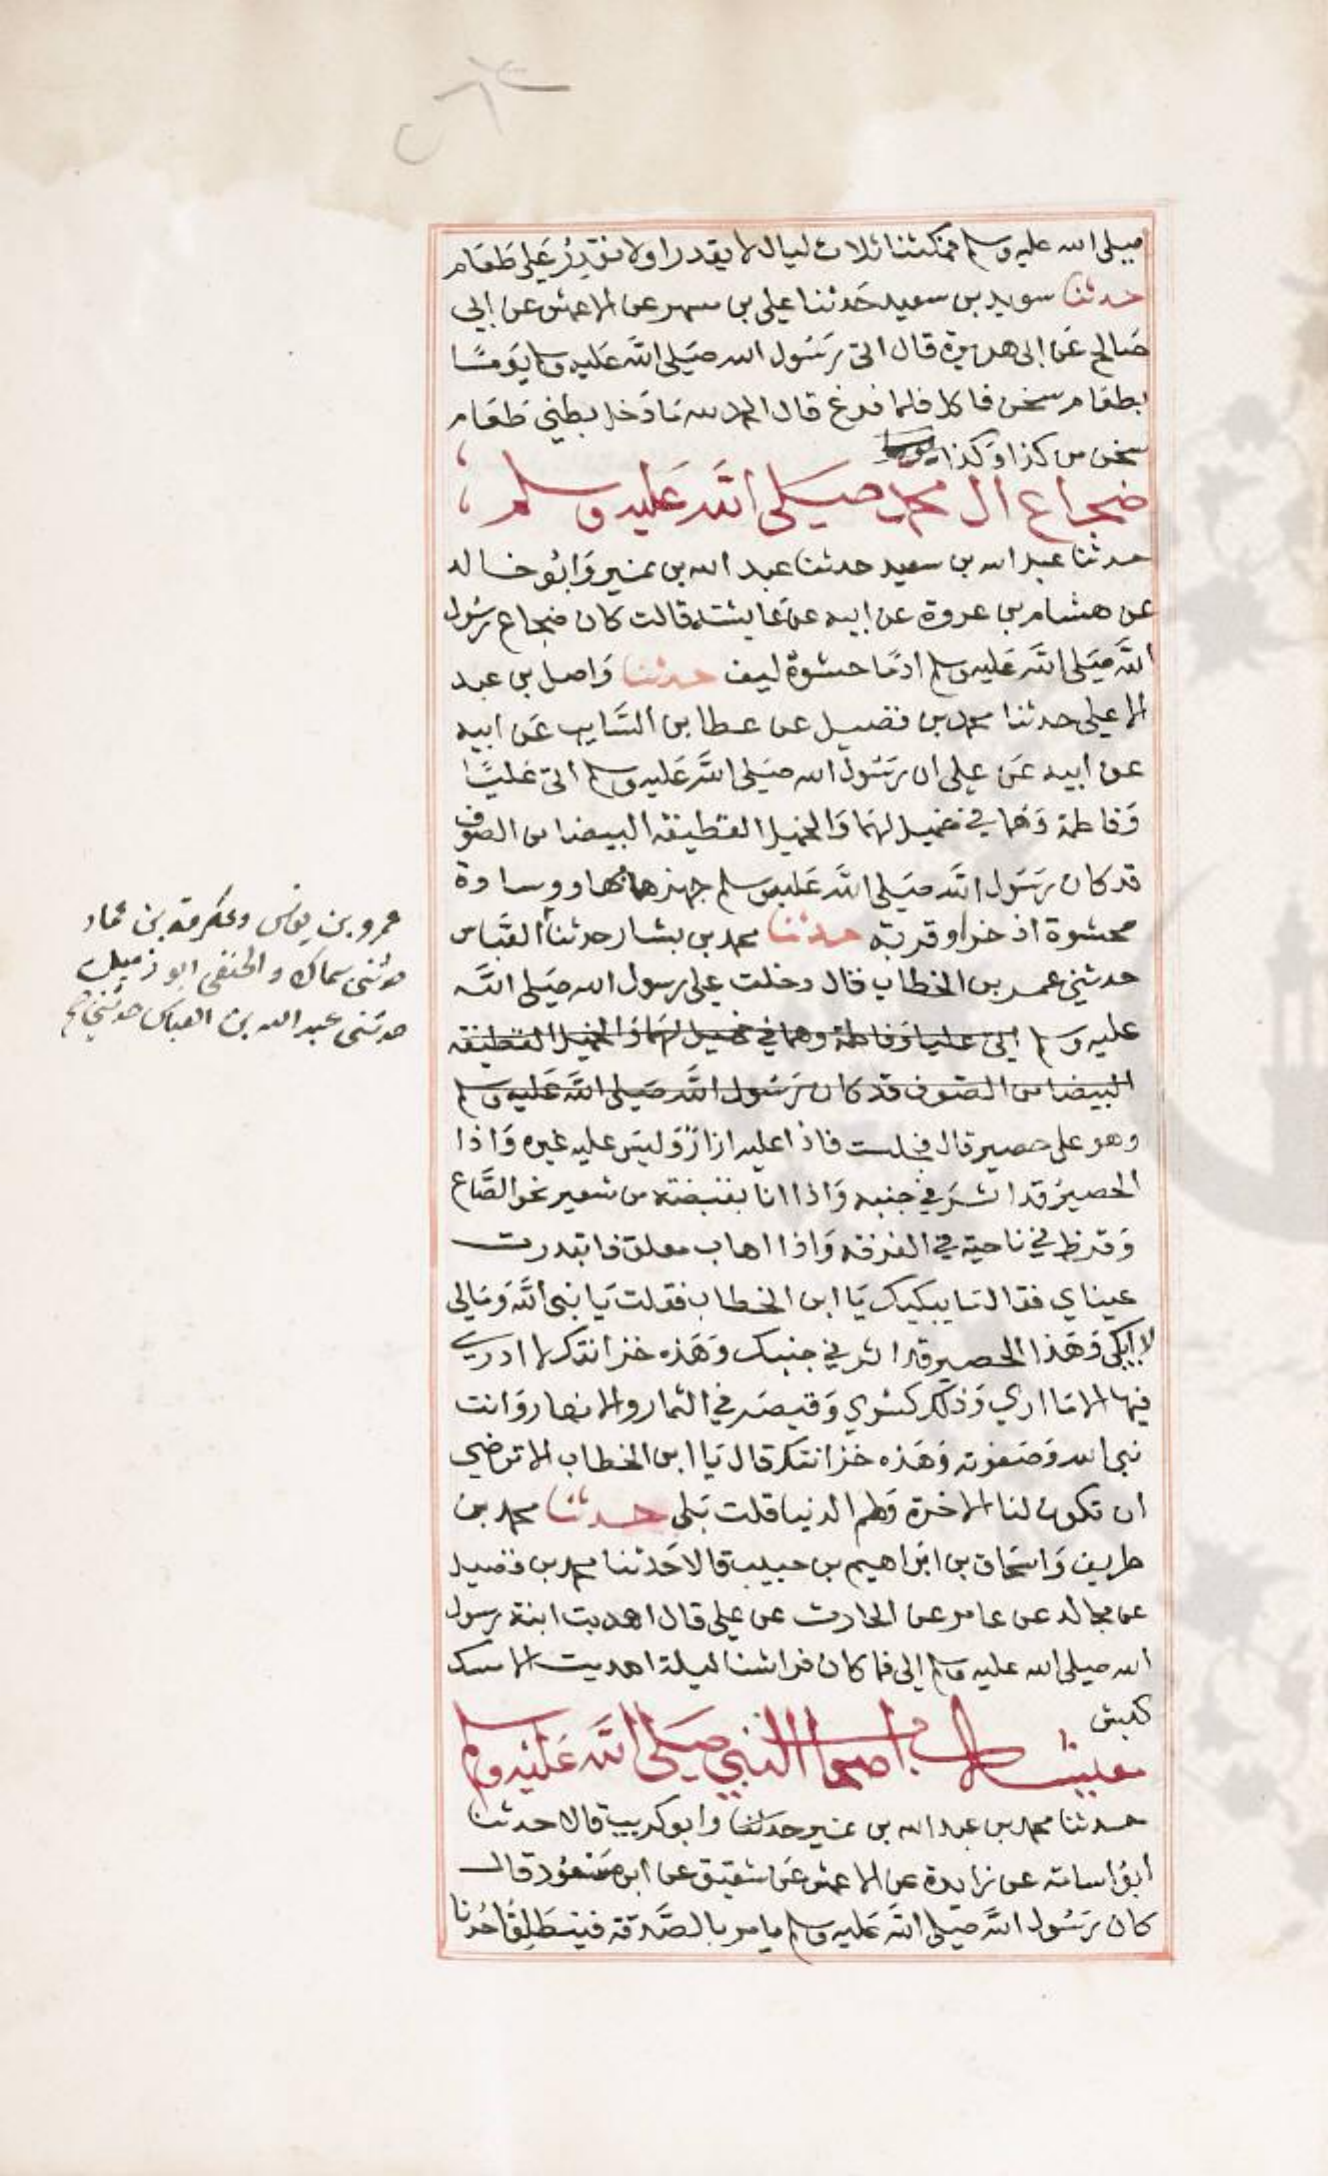 صلى الله عليه وسلم فمكثنا ثلاث ليال لا يقدر اولا نقدر على طعام
حدثنا سويد بن سعيد حدثنا علي بن مسهر عن الاعمش عن ابي
صالح عن ابي هريرة قال اتى رسول الله صلى الله عليه وسلم يومًا
بطعام سخن فاكل فلما فرغ قال الحمد لله ما دخل بطني طعام
سخن من كذا وكذا
ضجاع ال محمد صلى الله عليه وسلم
حدثنا عبد الله بن سعيد حدثنا عبد الله بن نمير وابو خالد
عن هشام بن عروة عن ابيه عن عايشة قالت كان ضجاع رسول
الله صلى الله عليه وسلم ادمًا حشوة ليف حدثنا واصل بن عبد
الاعلى حدثنا محمد بن فضيل عن عطا بن السايب عن ابيه
عن ابيه عن علي ان رسول الله صلى الله عليه وسلم اتى عليًا
وفاطمة وهما في خميل لهما والخميل القطيفة البيضا من الصوف
قد كان رسول الله صلى الله عليه وسلم جهزهما بها ووسادة
محشوة اذخرا وقربة حدثنا محمد بن بشار حدثنا العباس
حدثني عمر بن الخطاب قال دخلت على رسول الله صلى الله
عليه وسلم اتى عليا وفاطمة وهما في خميل لهما والخميل القطيفة
البيضا من الصوف قد كان رسول الله صلى الله عليه وسلم
وهو على حصير قال فجلست فاذا عليه ازار وليس عليه غيره واذا
الحصير قد اثر في جنبه واذا انا بقبضة من شعير نحو الصاع
وقرظ في ناحية في الغرفة واذا اهاب معلق فابتدرت
عيناي فقال ما يبكيك يا ابن الخطاب فقلت يا نبي الله ومالي
لا ابكي وهذا الحصير قد اثر في جنبك وهذه خزانتك لا ادري
فيها الا ما ارى وذلك كسرى وقيصر في الثمار والانهار وانت
نبي الله وصفوته وهذه خزانتك قال يا ابن الخطاب الا ترضى
ان تكون لنا الاخرة ولهم الدنيا قلت بلى حدثنا محمد بن
طريف واسحاق بن ابراهيم بن حبيب قالا حدثنا محمد بن فضيل
عن مجالد عن عامر عن الحارث عن علي قال اهديت ابنة رسول
الله صلى الله عليه وسلم الي فما كان فراشنا ليلة اهديت الا مسك
كبش
معيشة اصحاب النبي صلى الله عليه وسلم
حدثنا محمد بن عبد الله بن نمير حدثنا وابو كريب قالا حدثنا
ابو اسامة عن زايدة عن الاعمش عن شقيق عن ابن مسعود قال
كان رسول الله صلى الله عليه وسلم يامر بالصدقة فينطلق احدنا
عمرو بن يونس وعكرمة بن عمار
حدثنى سماك والحنفى ابو زميل
حدثنى عبد الله بن العباس حدثني صح